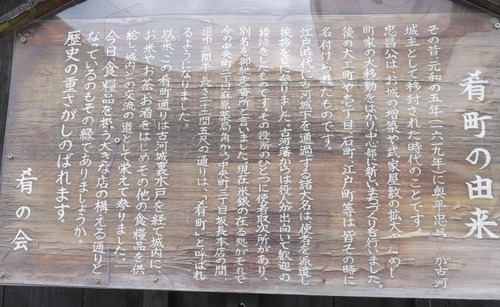 肴町の由来
その昔元和の五年（一六一九年）に奥平忠昌が古河
城主として移封された時代のことです。
忠昌公はお城の増築や武家屋敷の拡大一ためし
町家の大移動をはかり中心部に新いまちづくりを行いました。
後の大工町や壱丁目、石町、江戸町等は皆その時に
名付けられたものです。
江戸時代に河城下を通過する諸大名は使者を派遣し
挨拶をして参りました。古河藩からは役人が出向いて歓迎の
接待をしたものです。その役所のひとつに使者取次所があり、
別名を御馳走番所と言いました。現在の米銀の在る処がそれで
今の中央町二丁目原薬局角から中央町三丁目坂長本店の間
道巾三間半、長さ二十二間五尺の通りは、「肴町」と呼ばれ
るようになりました。
以来、この肴町通りは古河城裏木戸を経て城内に、
お米やお金、お酒をはじめその他の食糧品を供
給し城内との交流の道として栄えて参りました。
今日食糧品を扱う大きな店の構えが通りと
なっているのもその縁でありましょうか。
歴史の重さがしのばれます。
肴の会